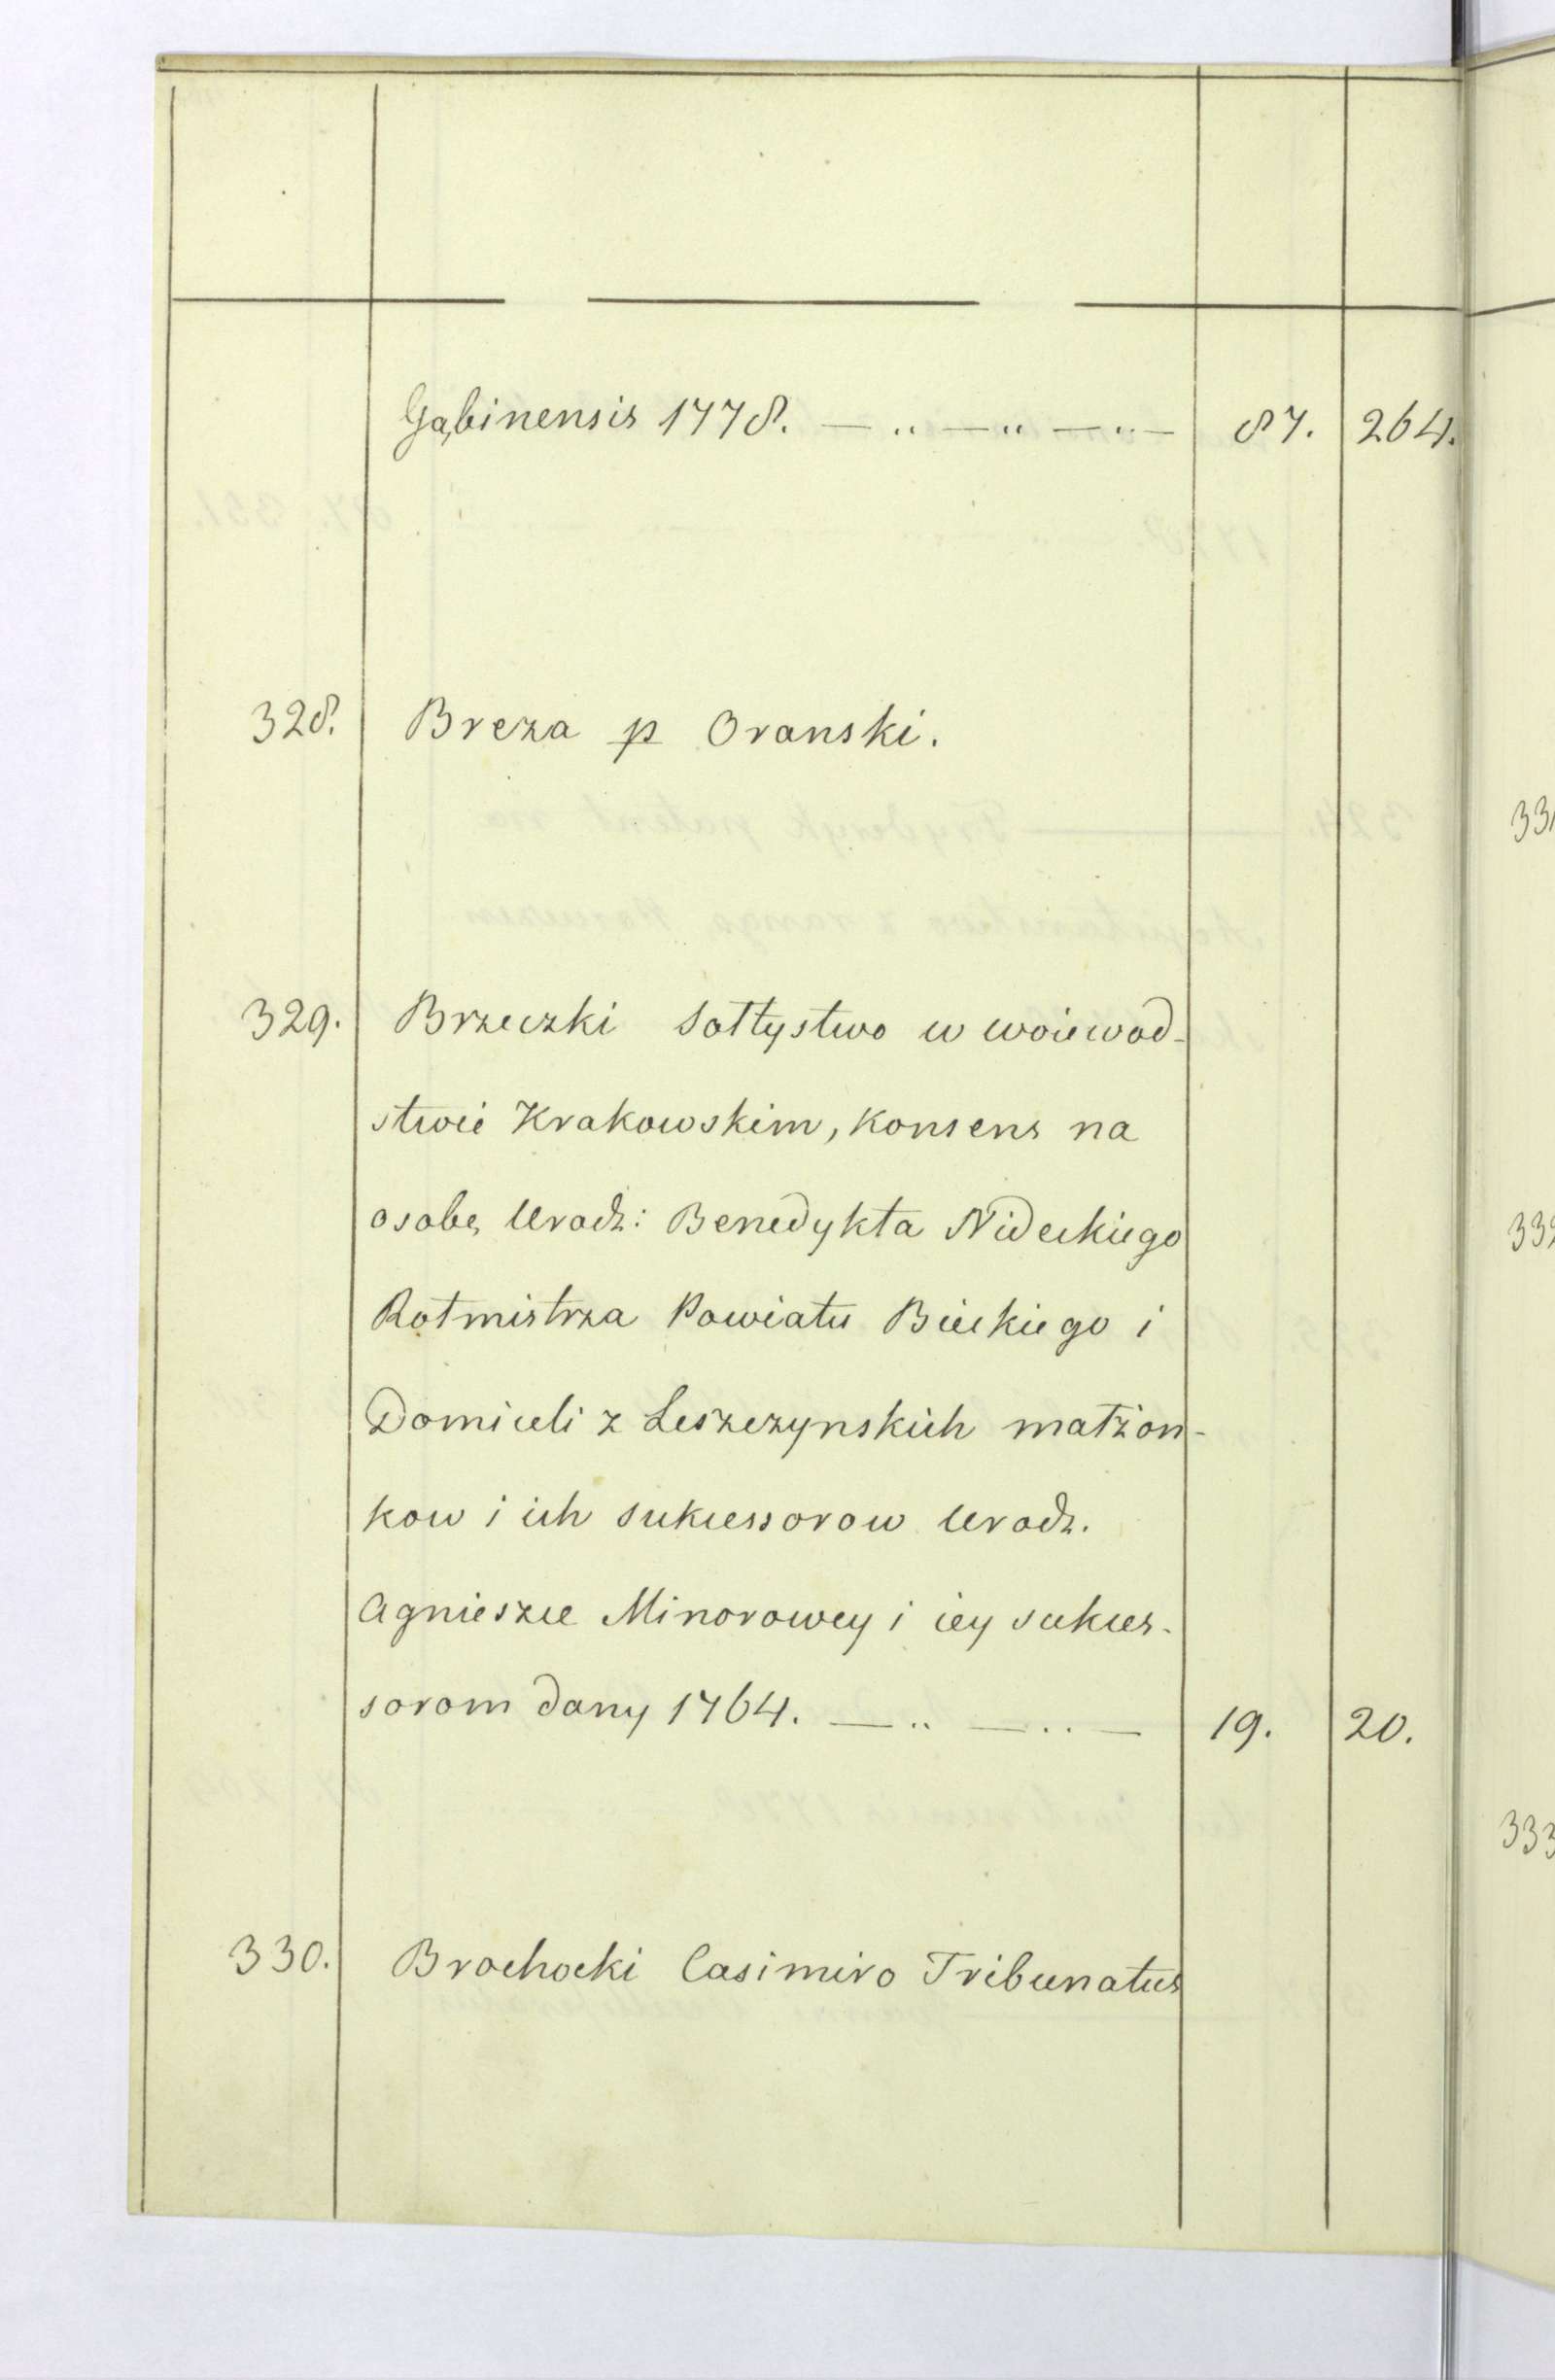 Gąbinensis 1778. — „ — „ — „ — 87. 264.
328. Breza p Oranski.
329. Brzeczki Sołtystwo w woiewod-
stwie Krakowskim, konsens na
osobę Urodz: Benedykta Nideckiego
Rotmistrza Powiatu Bieckiego i
Domiceli z Leszczynskich małżon-
kow i ich sukcessorow Urodz.
Agnieszce Minorowey i iey sukces-
sorom dany 1764. — „ — „ — 19. 20.
330. Brochocki Casimiro Tribunatus
331
332
333